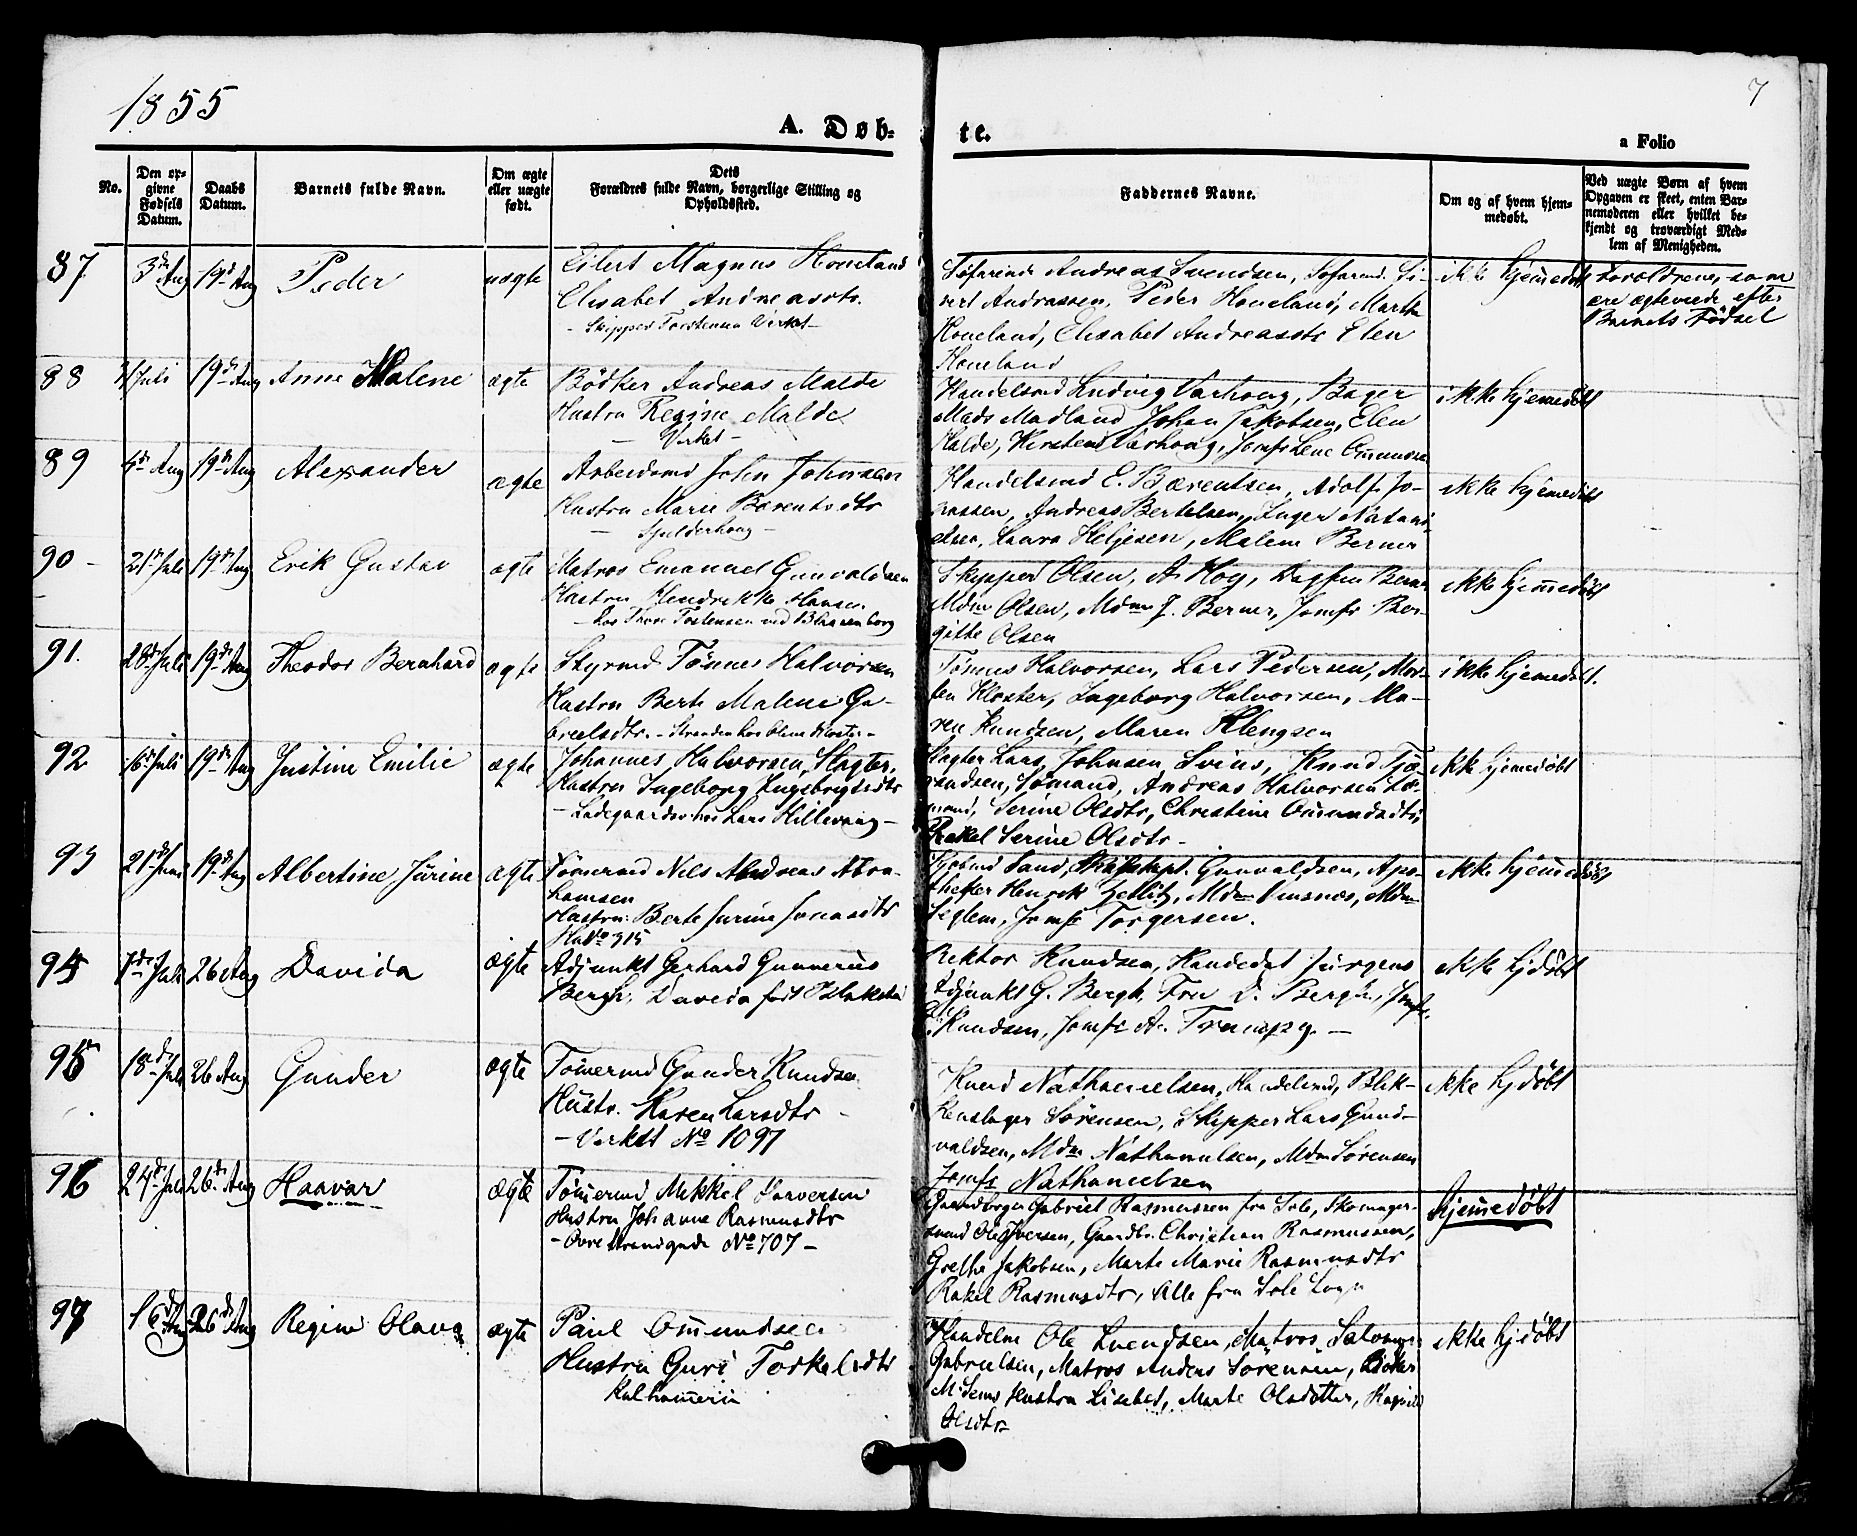 1855
7
A. Døb-
te.
a Folio
No.
Den op-
givne
Fødsels
Datum.
Daabs
Datum.
Barnets fulde Navn.
Om ægte
eller uægte
født.
Dets
Forældres fulde Navn, borgerlige Stilling og
Opholdssted.
Faddernes Navne.
Om og af hvem hjem-
medøbt.
Ved uægte Børn af hvem
Opgaven er skeet, enten Bar-
nemoderen eller hvilket be-
kjendt og troværdigt Med-
lem af Menigheden.
87
3die Aug
19de Aug
Peder
uægte
Eilert Magnus Honeland
Elisabet Andreasdtr.
- Skipper Torstensen Verket -
Andreas Svendsen, Si-
vert Andreassen, Peder Honeland, Marthe
Honeland, Elisabet Andreasdtr Elen
Honeland
ikke hjemmedøbt
Forældrene, som
ere ægteviede efter
Barnets Fødsel
88
Juli
19de Aug
Anne Malene
ægte
Bödker Andreas Malde
Hustru Regine Malde
- Verket -
Handelsmd Ludvig Varhoug, Bager
Mads Madland Johan Jakobsen, Elen
Malde, Kirsten Varhoug, Jomfr Lene
ikke hjemmedøbt
89
Aug
19de Aug
Alexander
ægte
Arbeidsmd John Johnsen
Hustru Marie Barentsdtr
- Spilderhoug -
Handelsmd E. Bærentsen, Adolf Jo-
nassen, Andreas Bertelsen, Inger Natani-
elsen, Laura Heljesen, Malene Berner
ikke hjemmedøbt
90 -
21de Juli
19de Aug
Erik Gustav
ægte
Matros Emanuel Gunvaldsen
Hustru Hendrikke Hansen
- hos Tore Torstensen ved Blaasenborg
Skipper Olsen, A. Høy, Dagfin Berner
Mdm Olsen, Mdm J. Berner, Jomfr Ber-
gitte Olsen
ikke hjemmedøbt
91.
28de Juli
19de Aug
Theodor Bernhard
ægte
Styrmd Tönnes Halvorsen
Hustru Berte Malene Ga-
brielsdtr. - Stranden hos Kloster -
Tönnes Halvorsen, Lars Pedersen, Mor-
ten Kloster, Ingeborg Halvorsen, Ma-
ren Knudsen, Maren Klengsen
ikke hjemmedøbt.
92
16de Juli
19de Aug
Justine Emilie
ægte
Johannes Halvorsen, Slagter,
Hustru Ingeborg Ingebrigtsdtr
- Ladegaardsv hos Lars Hillevaag -
Slagter Lars Johnsen Svins, Knud Tjo-
randsen, Sømand, Andreas Halvorsen Sø-
mand, Serine Olsdtr, Christine Omundsdtr,
Rakel Serine Olsdtr -
ikke hjemmedøbt
93
21de Juni
19de Aug
Albertine Jurine
ægte
Tömermd Nils Andreas Abra-
hamsen
Hustru: Berte Jurine Jonasdtr
No 315
Sand, Gunvaldsen, Apo-
theker Henrik Zedlitz, Mdm Vinsnæs, Mdm
Seglem, Jomfr Torgersen.
ikke hjemmedøbt
94
7de Juli
26 Aug
Davida
ægte
Adjunkt Gerhard Gunnerus
Bergh, Davida født
Rektor Knudsen, Jürgens
Adjunkt G. Bergh, Fru D. Bergh, Jomfr.
Knudsen, Jomfr A. Trampy. -
ikke hjdøbt
95
18de Juli
26 Aug
Gunder
ægte
Tömermd Gunder Knudsen
Hustr. Karen Larsdtr -
- Verket No 1097
Knud Nathanielsen, Handelsmd, Blik-
kenslager Sörensen, Skipper Lars Gund-
valdsen, Mdm Nathanielsen, Mdm Sörensen
Jomfr Nathanielsen
ikke hjdøbt
96
24de Juli
26de Aug
Haavar
ægte
Tömermd Mikkel Iverversen
Hustru Johanne Rasmusdtr
- Övre Strandgade No 707 -
Gaardbruger Gabriel Rasmussen fra Sole, Skomager-
svend Ole Iversen, Gaardbr. Christian Rasmussen,
Grethe Jakobsen, Marte Marie Rasmusdtr
Rakel Rasmusdtr, Alle fra Sole Sogn
hjemmedøbt
97
16de Aug
26de Aug
Regine Olava
ægte
Paul Omundsen
Hustru Guri Torkelsdtr
Kalhammeren
Handelm Ole Svendsen, Matros Salve
Gabrielsen, Matros Anders Sörensen,
Hustru Lisebet, Marte Olsdatter, Ragnild
Olsdtr
ikke hjdøbt